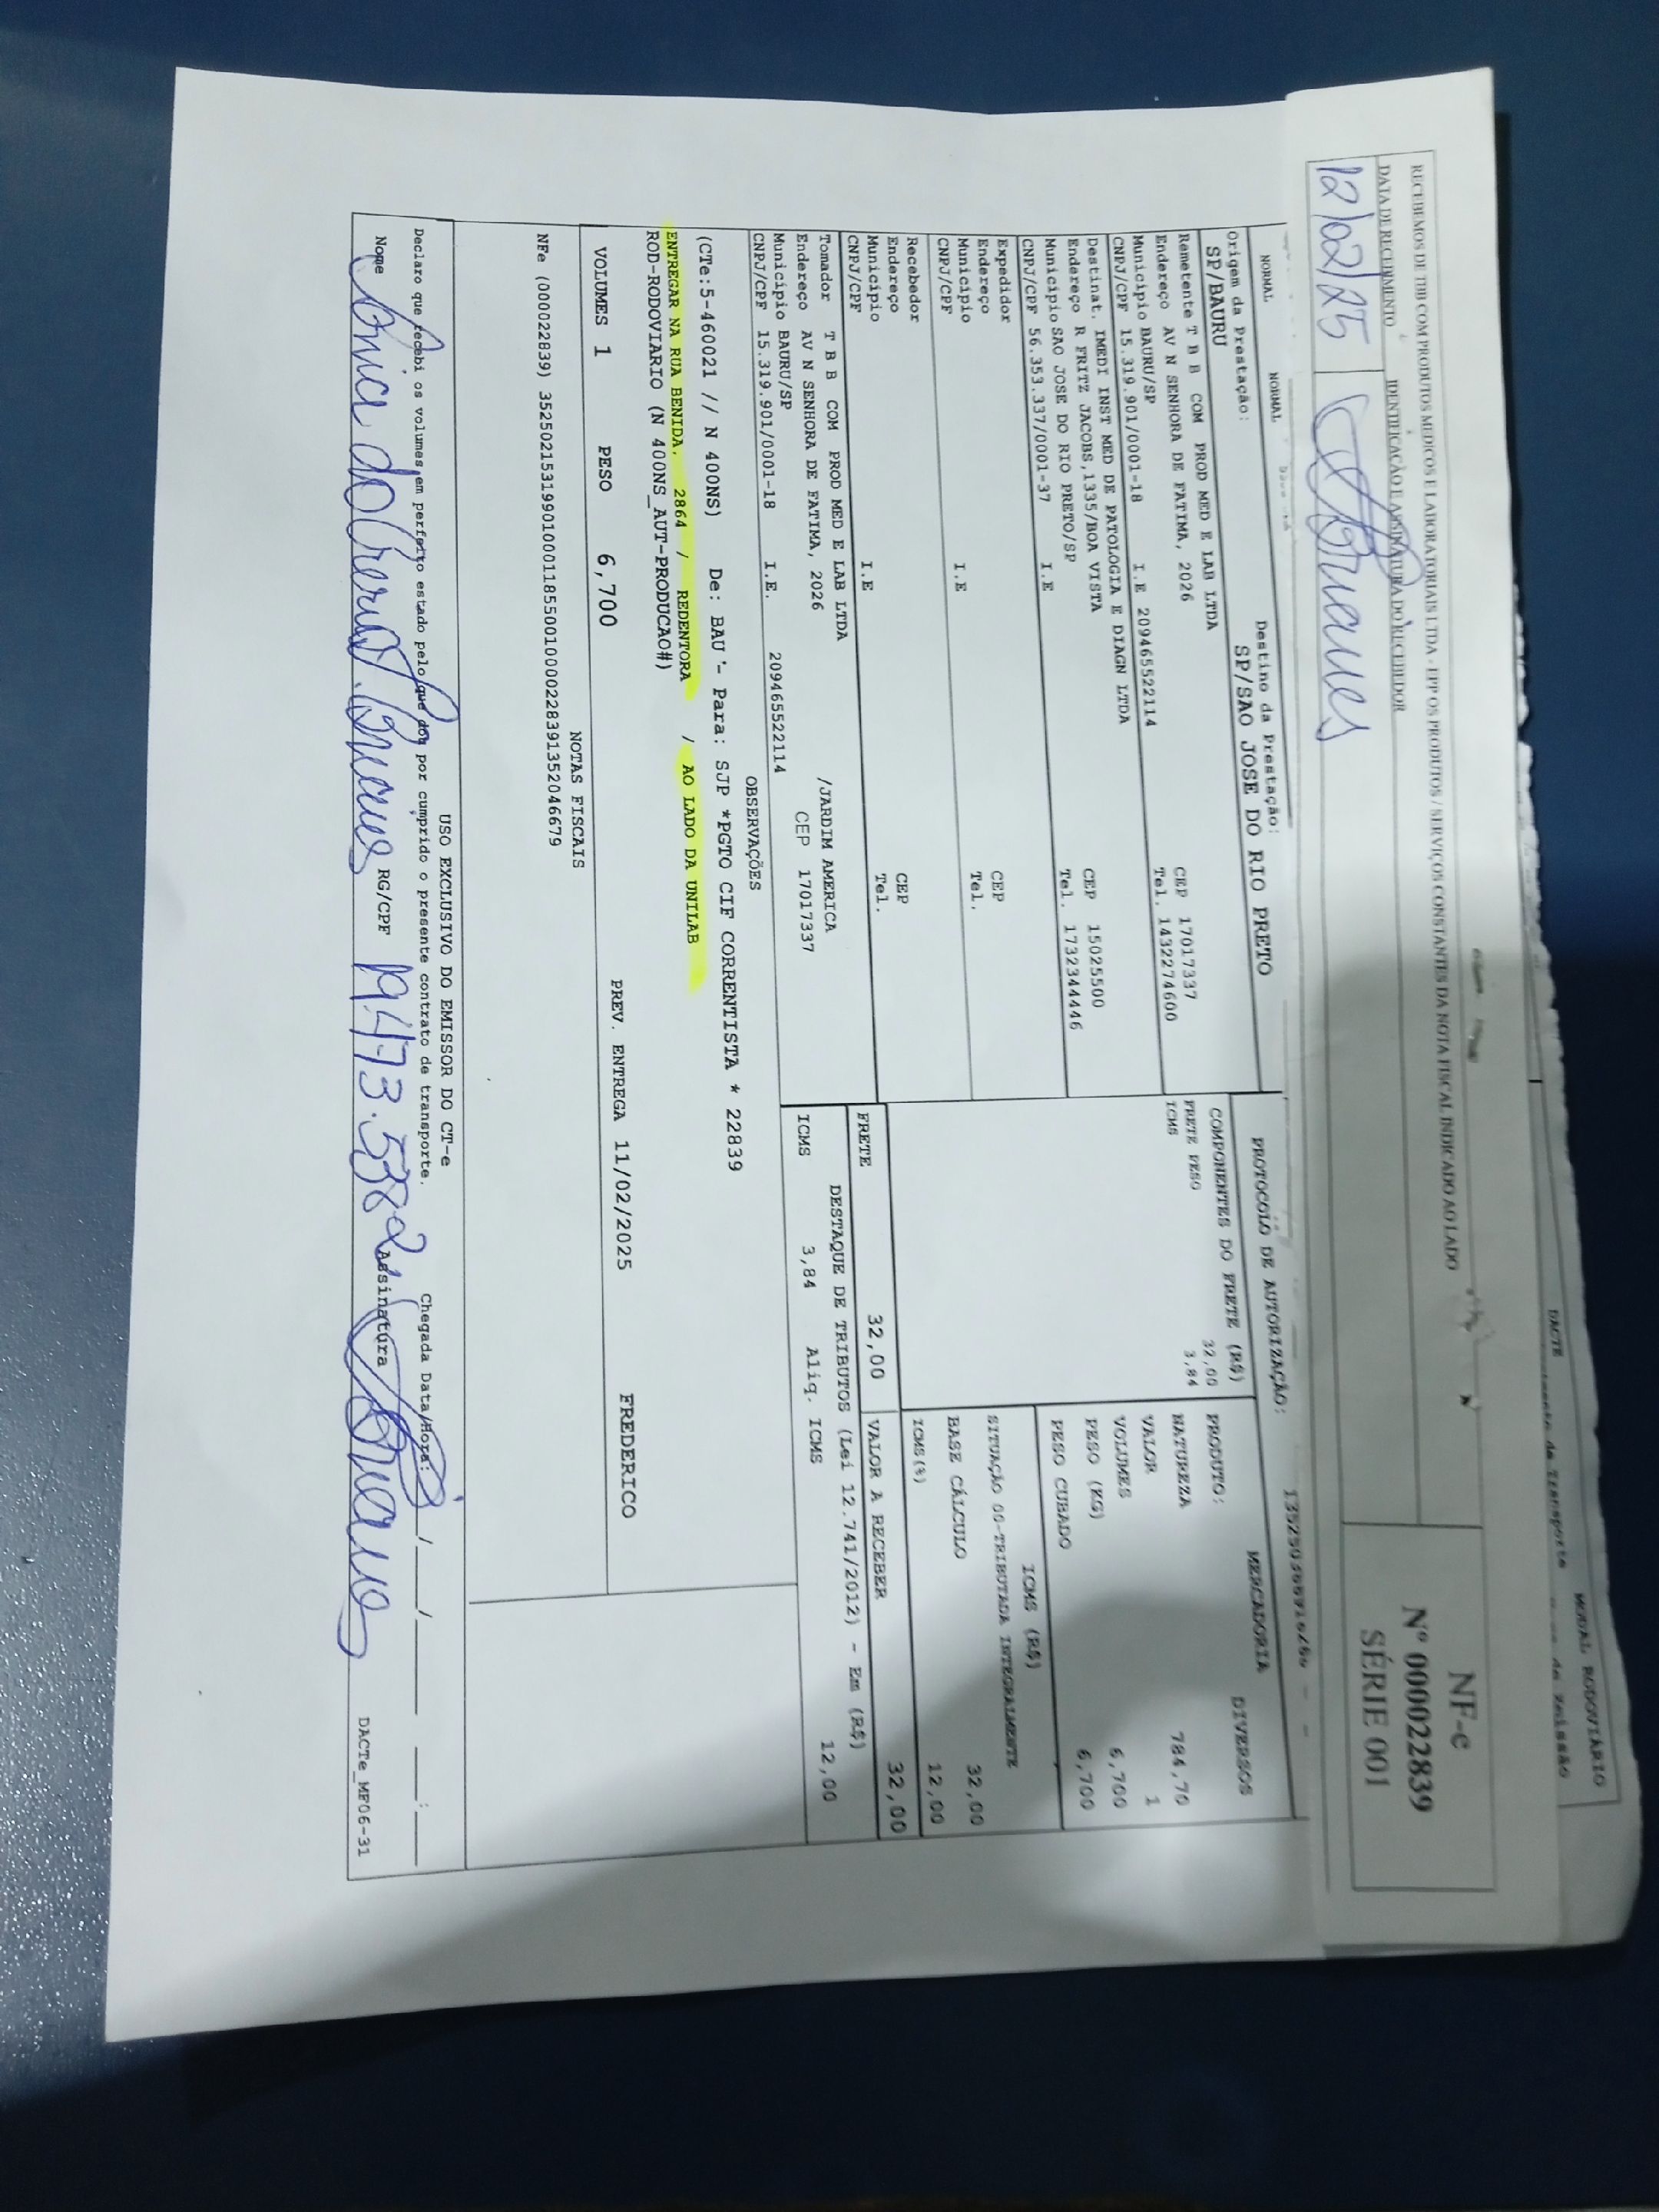 MODAL RODOVIÁRIO
DACTE
RECEBEMOS DE TBB COM PRODUTOS MEDICOS E LABORATORIAIS LTDA - EPP OS PRODUTOS / SERVIÇOS CONSTANTES DA NOTA FISCAL INDICADO AO LADO
DATA DE RECEBIMENTO IDENTIFICAÇÃO E ASSINATURA DO RECEBEDOR
12/02/25
NF-e
Nº 000022839
SÉRIE 001
NORMAL NORMAL
PROTOCOLO DE AUTORIZAÇÃO:
Origem da Prestação: Destino da Prestação:
SP/BAURU SP/SAO JOSE DO RIO PRETO
Remetente T B B COM PROD MED E LAB LTDA
Endereço AV N SENHORA DE FATIMA, 2026 CEP 17017337
Município BAURU/SP Tel. 1432274600
CNPJ/CPF 15.319.901/0001-18 I.E 209465522114
Destinat. IMEDI INST MED DE PATOLOGIA E DIAGN LTDA
Endereço R FRITZ JACOBS,1335/BOA VISTA CEP 15025500
Município SAO JOSE DO RIO PRETO/SP Tel. 1732344446
CNPJ/CPF 56.353.337/0001-37 I.E
Expedidor
Endereço CEP
Município Tel.
CNPJ/CPF I.E
Recebedor
Endereço CEP
Município Tel.
CNPJ/CPF I.E
Tomador T B B COM PROD MED E LAB LTDA
Endereço AV N SENHORA DE FATIMA, 2026 /JARDIM AMERICA
Município BAURU/SP CEP 17017337
CNPJ/CPF 15.319.901/0001-18 I.E. 209465522114
COMPONENTES DO FRETE (R$)
FRETE PESO 32,00
ICMS 3,84
MERCADORIA
PRODUTO: DIVERSOS
NATUREZA
VALOR 784,70
VOLUMES 1
PESO (KG) 6,700
PESO CUBADO 6,700
ICMS (R$)
SITUAÇÃO 00-TRIBUTADA INTEGRALMENTE
BASE CÁLCULO 32,00
ICMS(%) 12,00
FRETE 32,00 VALOR A RECEBER 32,00
DESTAQUE DE TRIBUTOS (Lei 12.741/2012) - Em (R$)
ICMS 3,84 Aliq. ICMS 12,00
OBSERVAÇÕES
(CTe:5-460021 // N 400NS) De: BAU - Para: SJP *PGTO CIF CORRENTISTA * 22839
ENTREGAR NA RUA BENIDA, 2864 / REDENTORA / AO LADO DA UNILAB
ROD-RODOVIARIO (N 400NS_AUT-PRODUCAO#)
VOLUMES 1 PESO 6,700 PREV. ENTREGA 11/02/2025 FREDERICO
NOTAS FISCAIS
NFe (000022839) 35250215319901000118550010000228391352046679
USO EXCLUSIVO DO EMISSOR DO CT-e
Declaro que recebi os volumes em perfeito estado pelo que dou por cumprido o presente contrato de transporte. Chegada Data/Hora: / / :
Nome RG/CPF 19.473.538-2 Assinatura DACTe_MF06-31